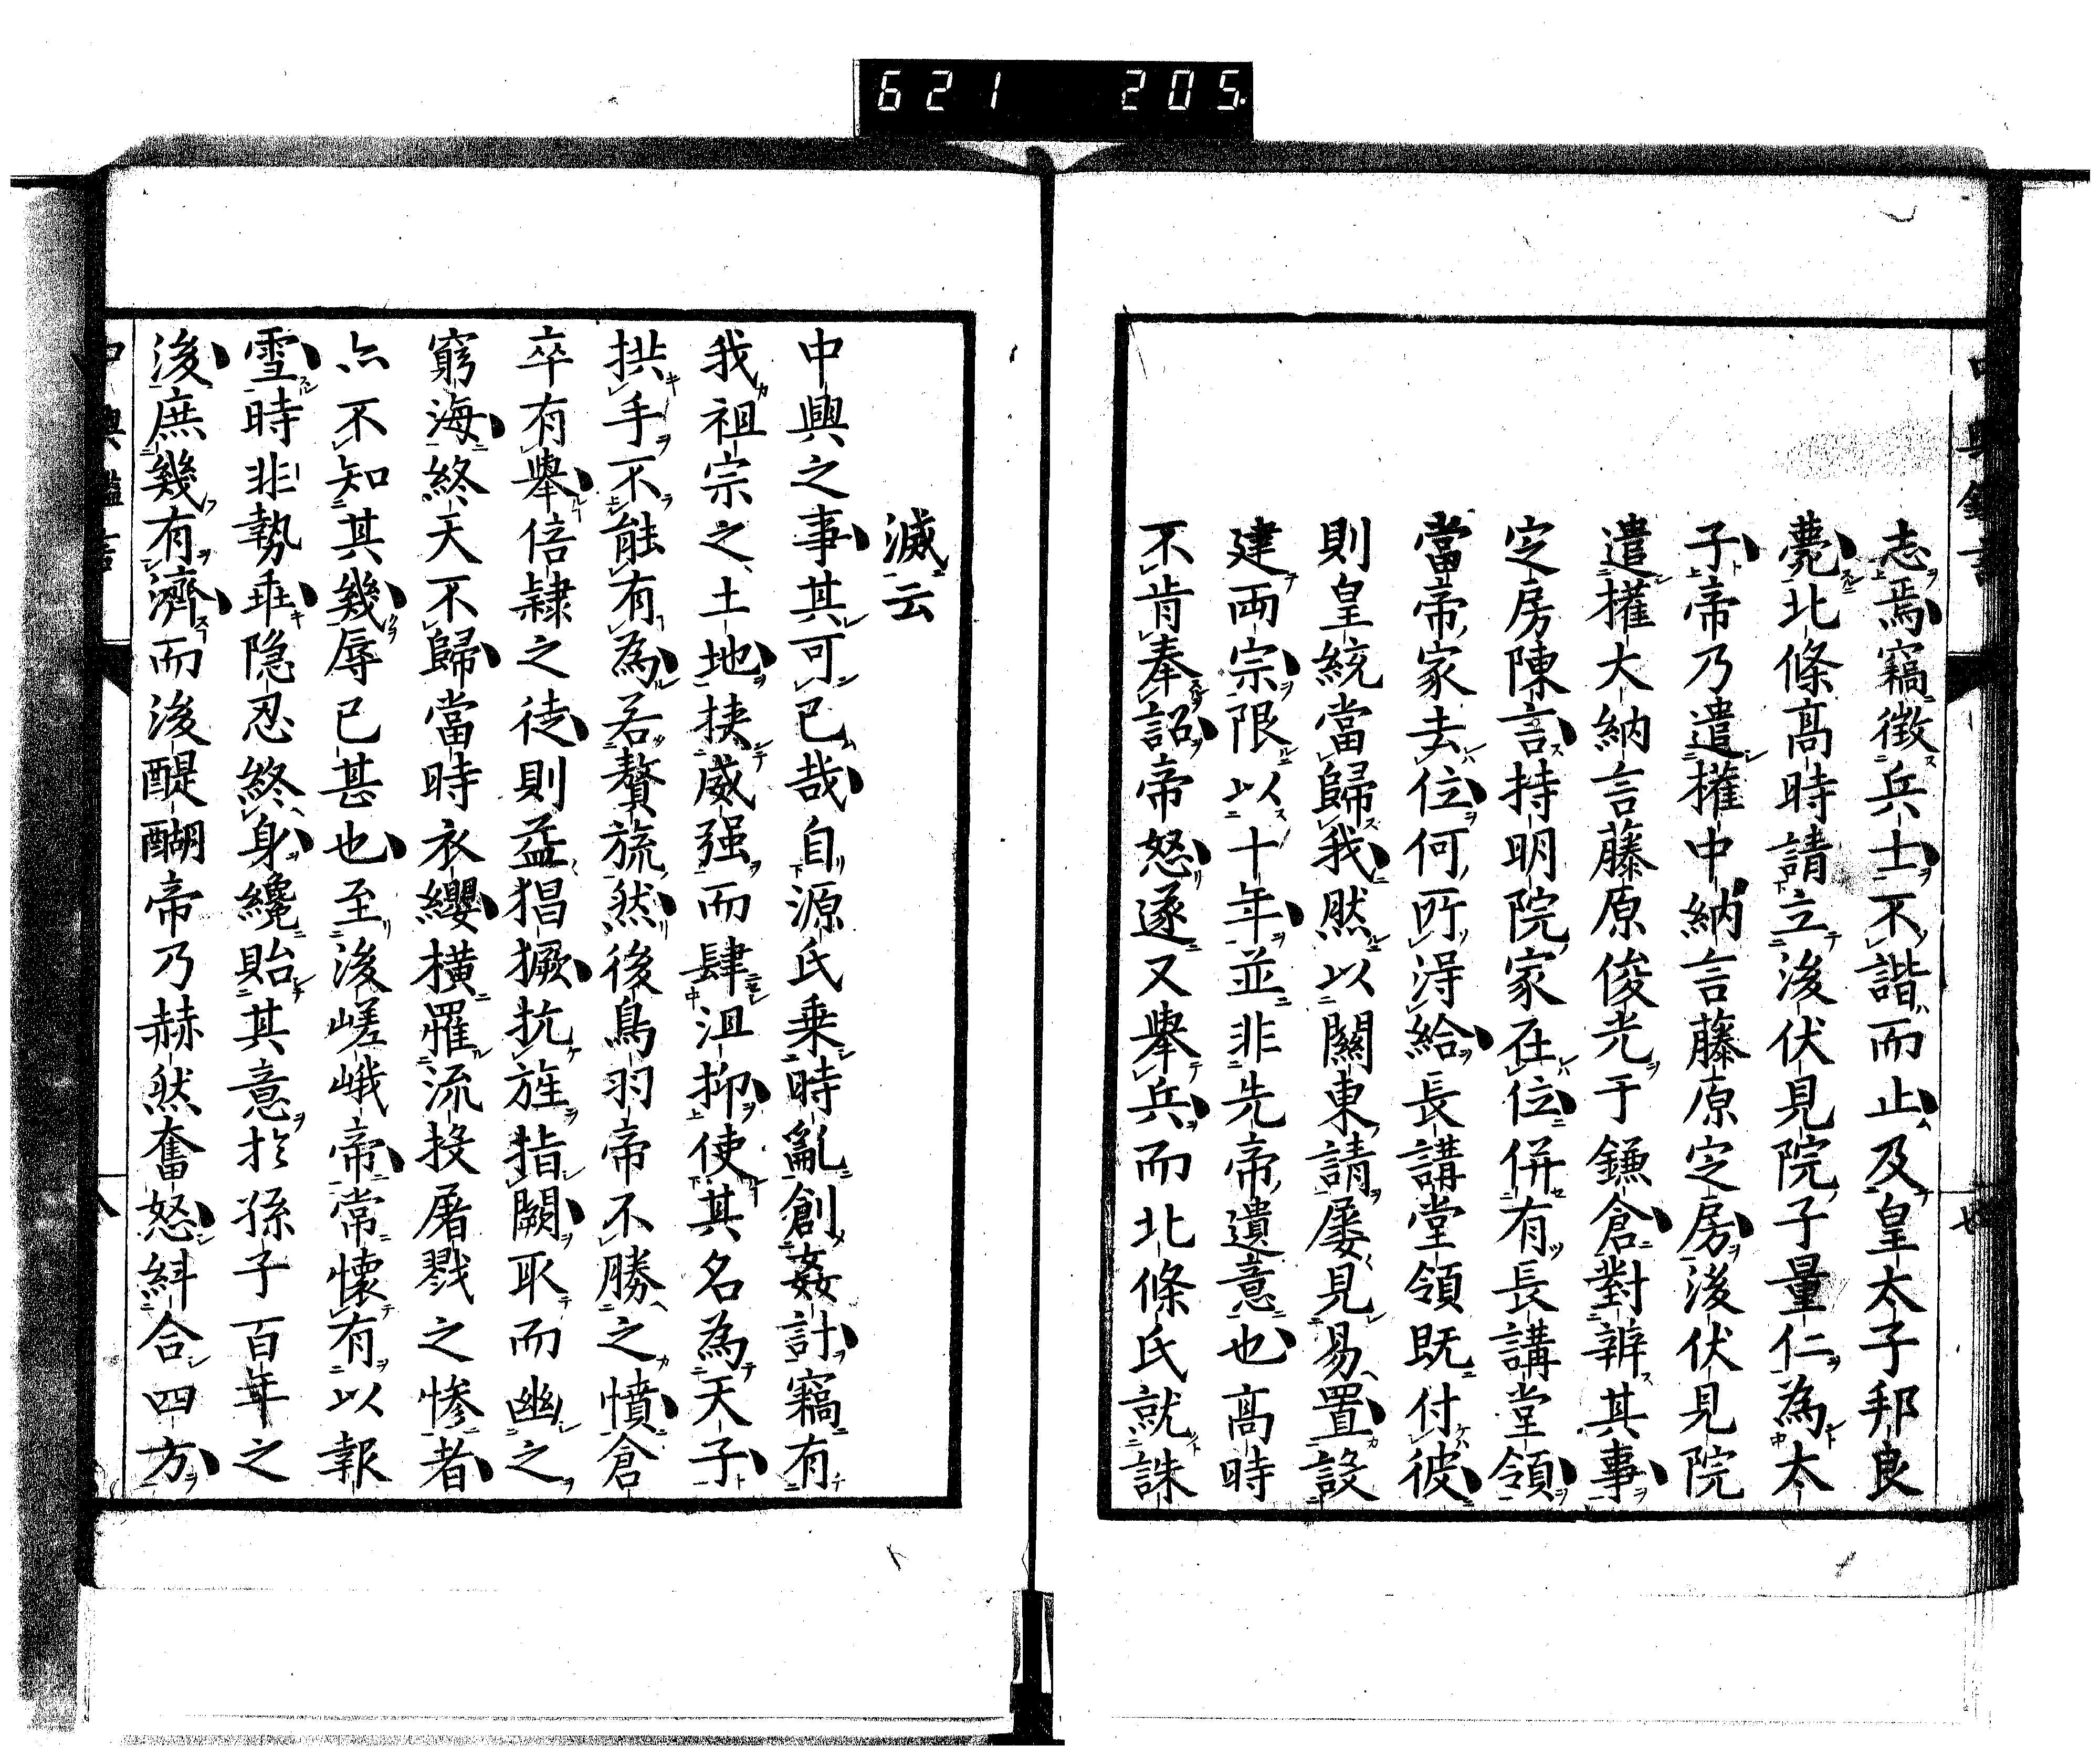 621 205
志焉竊徴兵士不諧而止及皇太子邦良
薨北條高時請立後伏見院子量仁為太
子帝乃遣權中納言藤原定房後伏見院
遣權大納言藤原俊光于鎌倉對辨其事
定房陳言持明院家在位併有長講堂領
當帝家去位何所得給長講堂領既付彼
則皇統當歸我然以關東請屢見易置設
建兩宗限以十年並非先帝遺意也高時
不肯奉詔帝怒遂又舉兵而北條氏就誅
滅云
中興之事其可已哉自源氏乗時亂創姦計竊有
我祖宗之土地挟威强而肆沮抑使其名為天子
拱手不能有為若贅旒然後鳥羽帝不勝之憤倉
卒有舉倍隷之徒則益猖獗抗旌指闕取而幽之
窮海終天不歸當時衣纓横罹流投屠戮之惨者
亦不知其幾辱已甚也至後嵯峨帝常懷有以報
雪時非勢乖隠忍終身纔貽其意於孫子百年之
後庶幾有濟而後醍醐帝乃赫然奮怒糾合四方